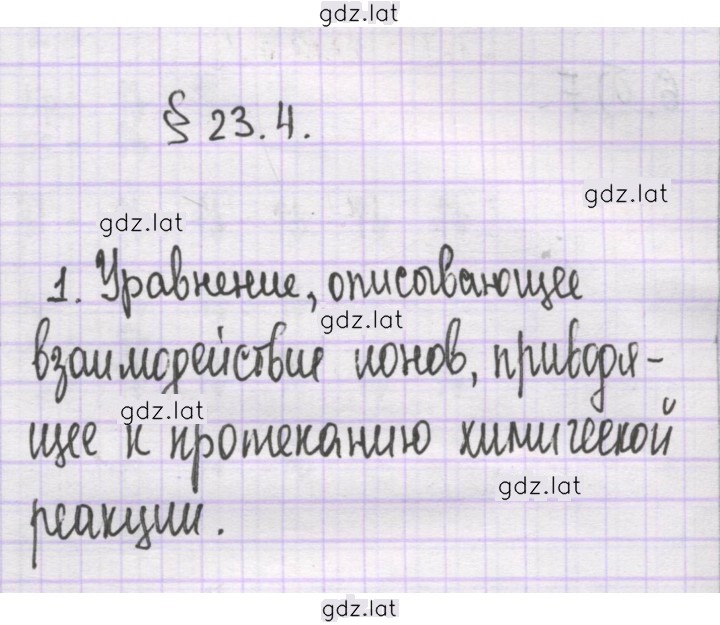 gdz.lat
§ 23.4.
gdz.lat
gdz.lat
1. Уравнение, описывающее
gdz.lat
взаимодействие ионов, приводя-
gdz.lat
щее к протеканию химической
gdz.lat
реакции.
gdz.lat